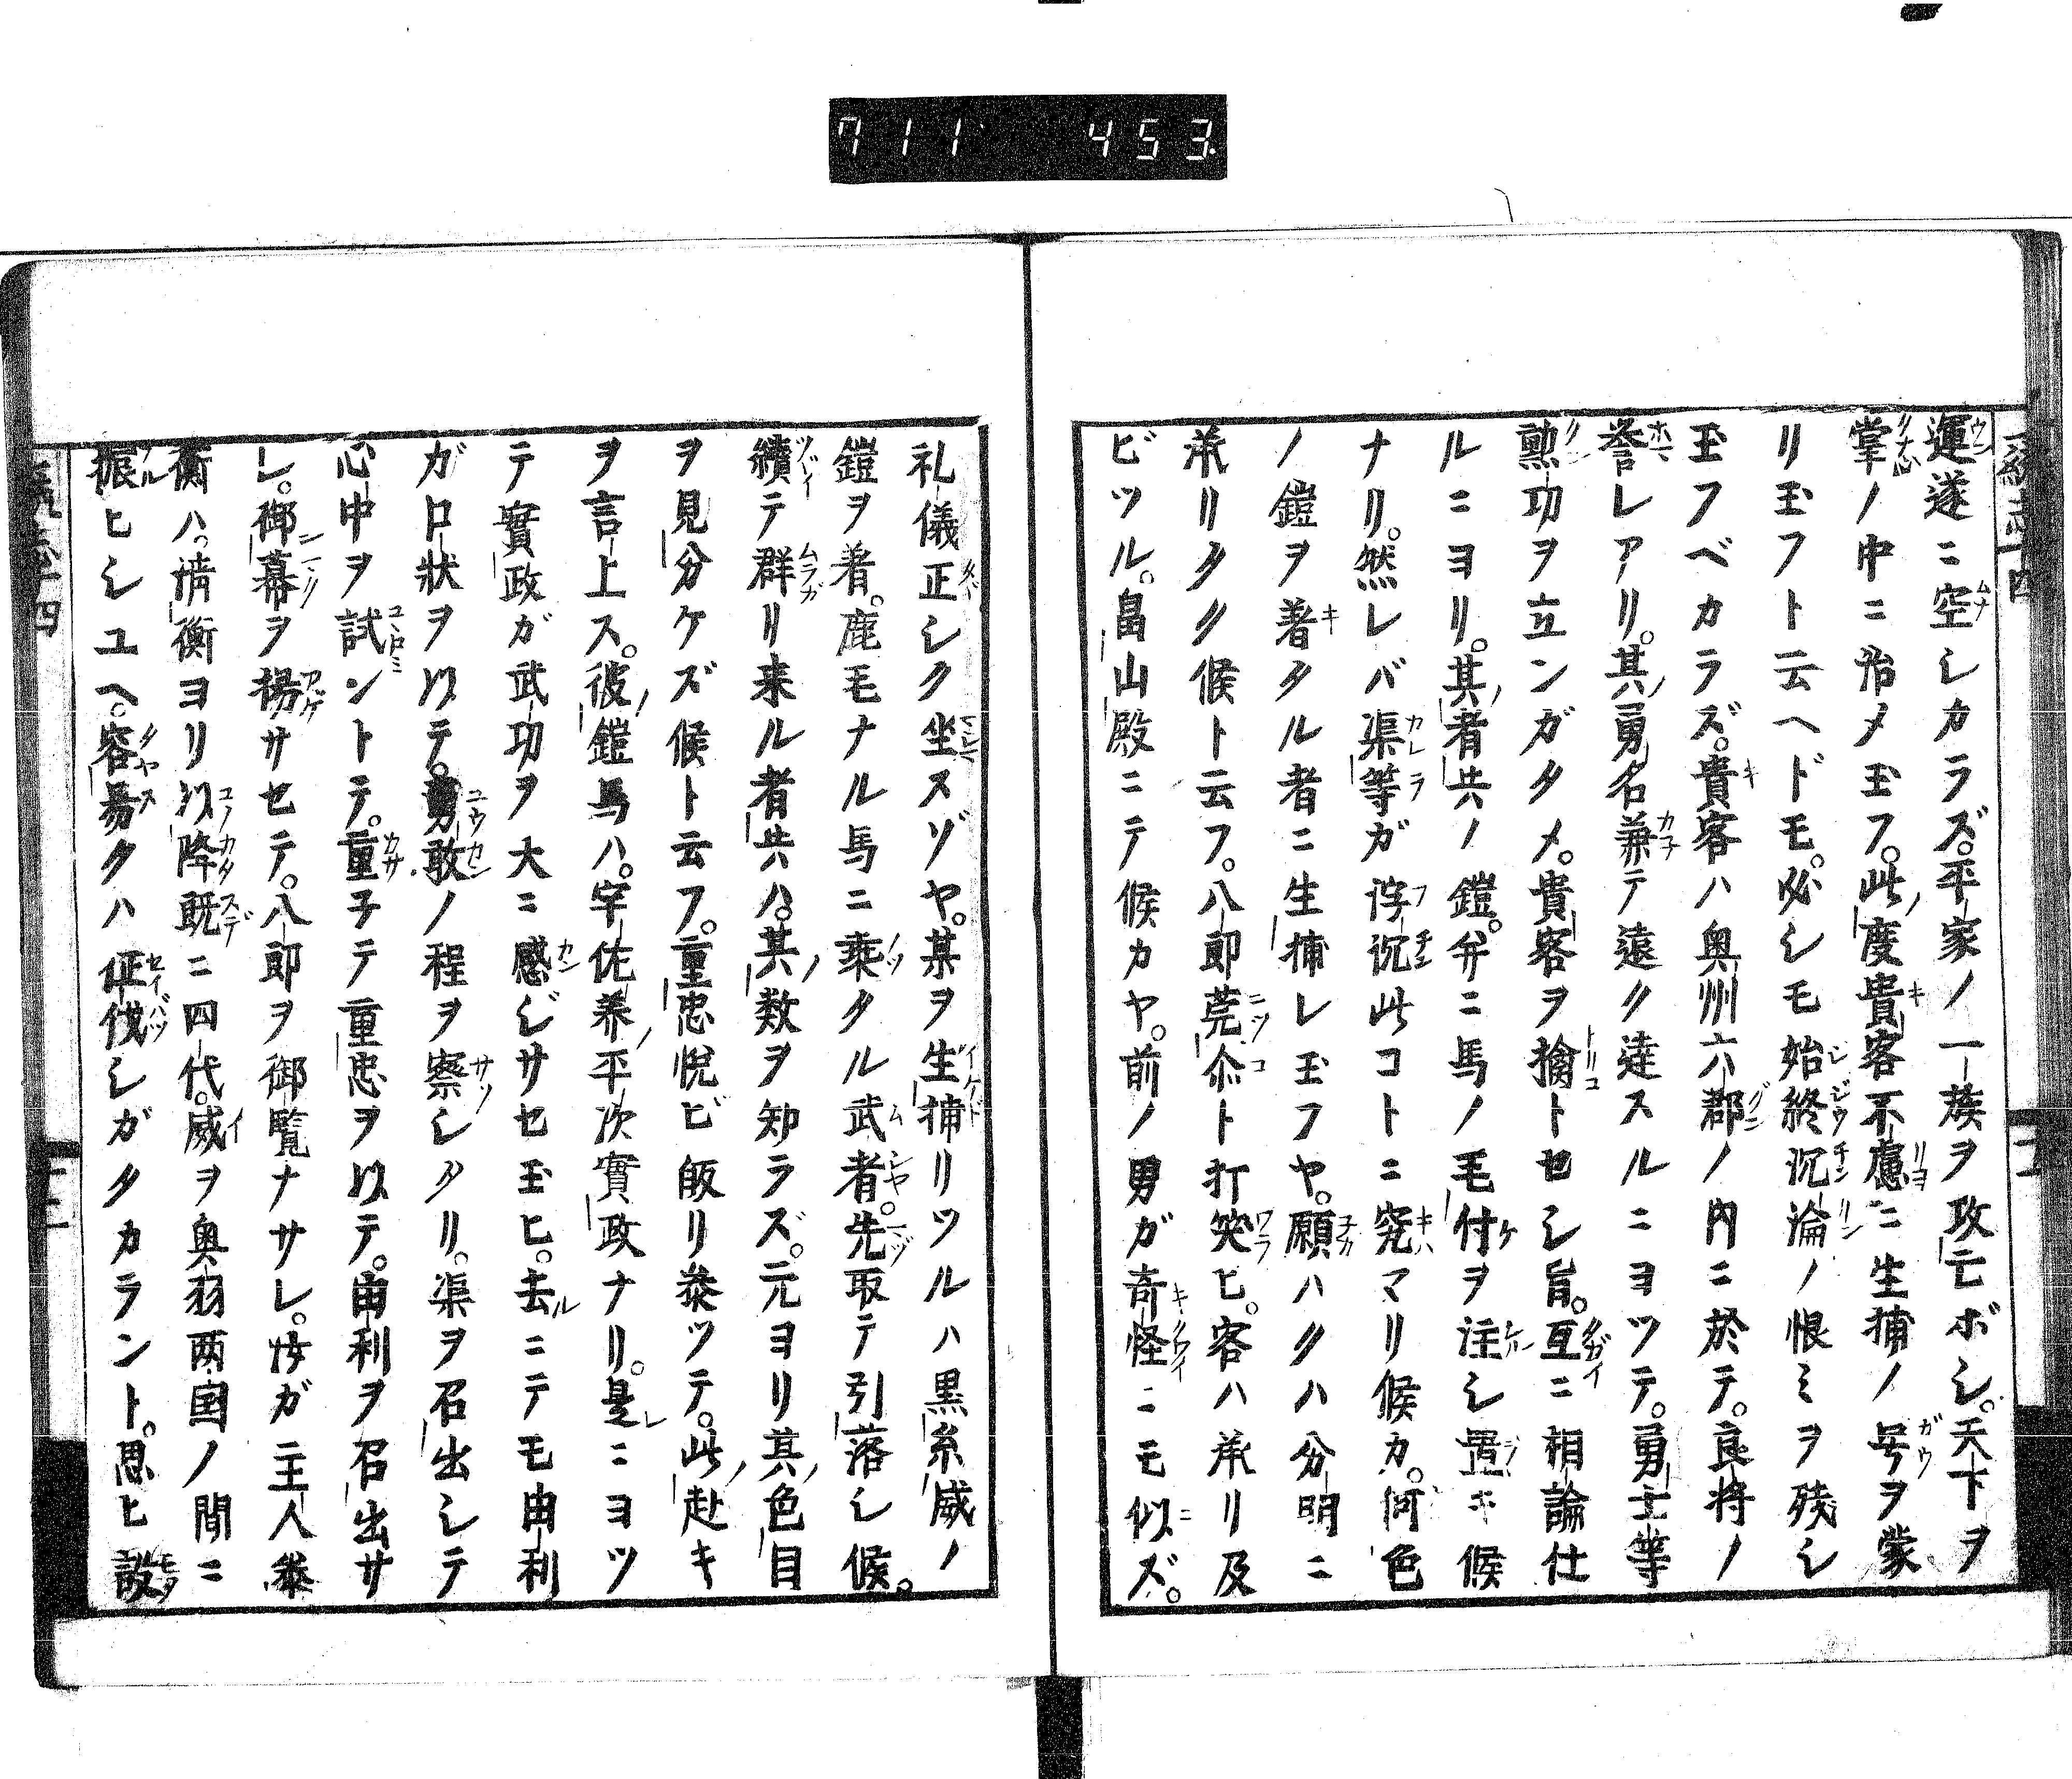 711 453
運遂ニ空シカラズ。平家ノ一族ヲ攻亡ボシ。天下ヲ
掌ノ中ニ治メ玉フ。此度貴客不慮ニ生捕ノ号ヲ蒙
リ玉フト云ヘドモ。必シモ始終沉淪ノ恨ミヲ残シ
玉フベカラズ。貴客ハ奥州六郡ノ内ニ於テ。良将ノ
誉レアリ。其勇名兼テ遠ク達スルニヨツテ。勇士等
勲功ヲ立ンガタメ。貴客ヲ擒トセシ旨。互ニ相論仕
ルニヨリ。其者共ノ鎧。并ニ馬ノ毛付ヲ注シ置キ候
ナリ。然レバ渠等ガ浮沉此コトニ究マリ候カ。何色
ノ鎧ヲ著タル者ニ生捕レ玉フヤ。願ハクハ分明ニ
承リタク候ト云フ。八郎莞尒ト打笑ヒ。客ハ承リ及
ビツル。畠山殿ニテ候カヤ。前ノ男ガ奇怪ニモ似ズ。
礼儀正シク坐スゾヤ。某ヲ生捕リツルハ黒糸威ノ
鎧ヲ着。鹿毛ナル馬ニ乗タル武者。先取テ引落シ候。
續テ群リ来ル者共ハ。其数ヲ知ラズ。元ヨリ其色目
ヲ見分ケズ候ト云フ。重忠悦ビ皈リ参ツテ。此赴キ
ヲ言上ス。彼鎧馬ハ。宇佐美平次實政ナリ。是ニヨツ
テ實政ガ武功ヲ大ニ感ジサセ玉ヒ。去ニテモ由利
ガ口状ヲ以テ。勇敢ノ程ヲ察シタリ。渠ヲ召出シテ
心中ヲ試ントテ。重子テ重忠ヲ以テ。由利ヲ召出サ
レ。御幕ヲ揚サセテ。八郎ヲ御覧ナサレ。汝ガ主人泰
衡ハ。清衡ヨリ以降既ニ四代。威ヲ奥羽両国ノ間ニ
振ヒシユヘ。容易クハ征伐シガタカラント。思ヒ設